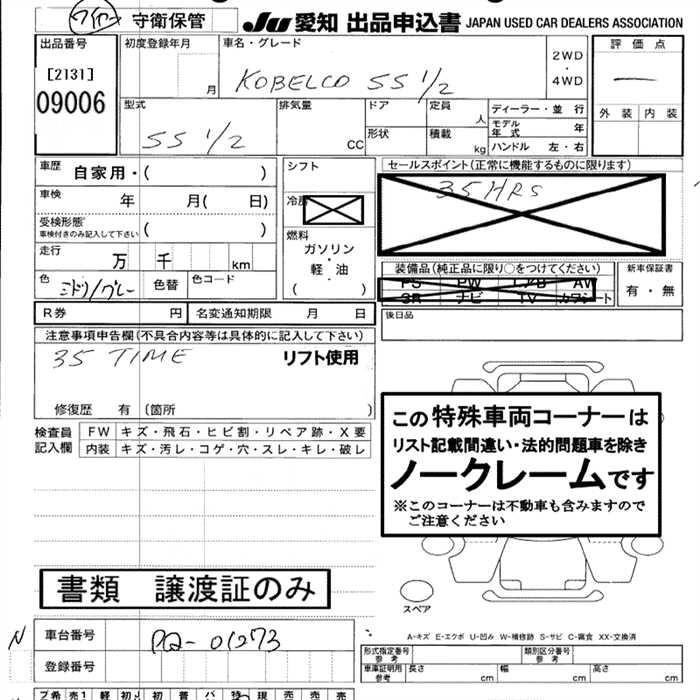 守衛保管 JU 愛知 出品申込書 JAPAN USED CAR DEALERS ASSOCIATION
出品番号 初度登録年月 車名・グレード 評価点
[2131] 月 KOBELCO SS 1/2 2WD・4WD —
09006 型式 排気量 ドア 定員 ディーラー・並行 外装 内装
SS 1/2 CC 形状 人 モデル年式 年
積載 kg ハンドル 左・右
車歴 自家用・( ) シフト セールスポイント(正常に機能するものに限ります)
車検 年 月( 日) 35HRS
受検形態 車検付きのみ記入して下さい ( ) 燃料
走行 万 千 km ガソリン・軽・油 ( ) 装備品(純正品に限り○をつけてください) 新車保証書
色 ミドリ/グレー 色替 色コード PS PW エアB AW 有・無
SR ナビ TV カワシート
R券 円 名変通知期限 月 日 後日品
注意事項申告欄(不具合内容等は具体的に記入して下さい)
35 TIME リフト使用
修復歴 有 (箇所 )
この特殊車両コーナーは
リスト記載間違い・法的問題車を除き
ノークレームです
※このコーナーは不動車も含みますので
ご注意ください
検査員記入欄 FW キズ・飛石・ヒビ割・リペア跡・X要
内装 キズ・汚レ・コゲ・穴・スレ・キレ・破レ
書類 譲渡証のみ
スペア
A-キズ E-エクボ U-凹み W-補修跡 S-サビ C-腐食 XX-交換済
N 車台番号 PQ-01273
登録番号
形式指定番号 参考 類別区分番号 参考
車庫証明用 参考 長さ cm 幅 cm 高さ cm